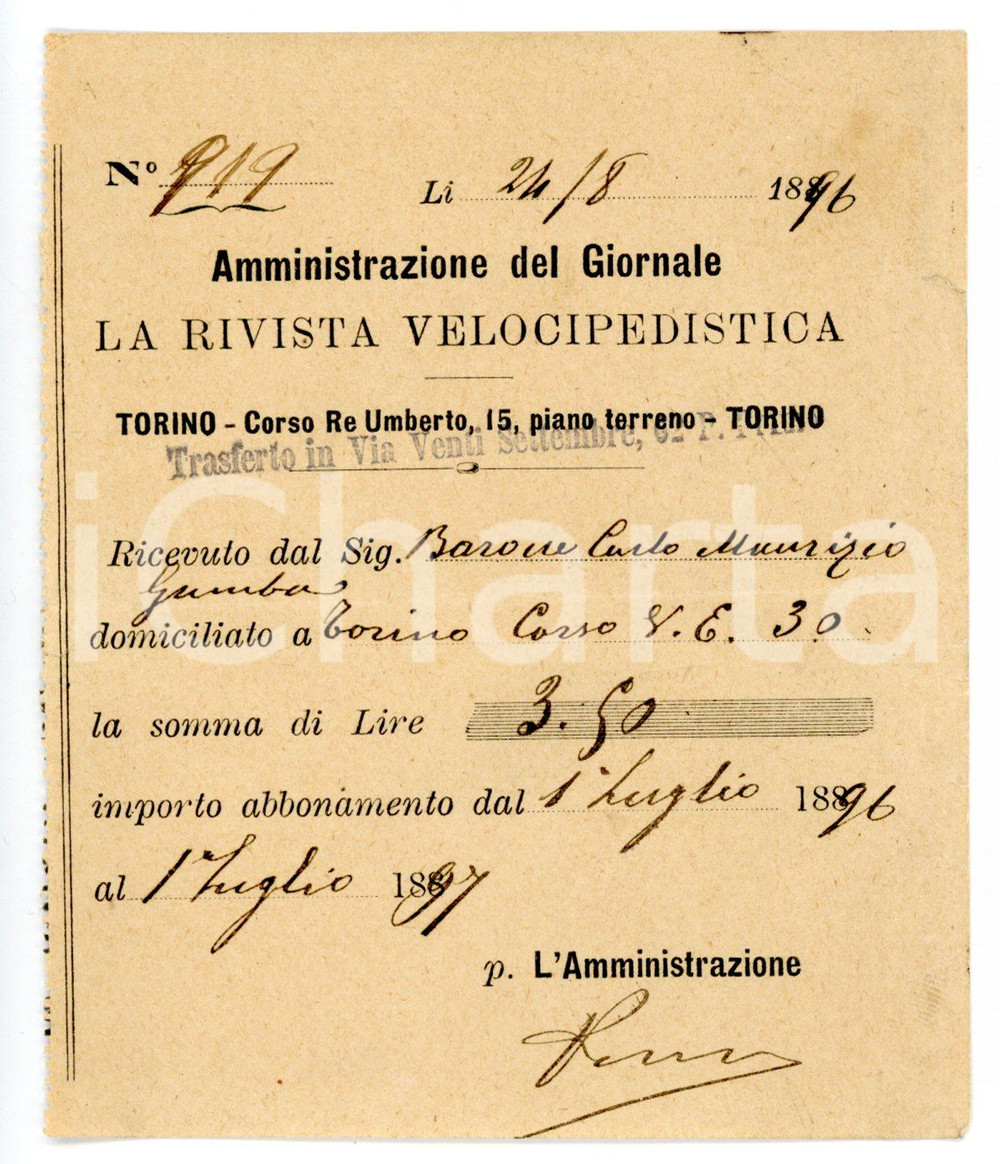 Nº 919 Li 24/8 18896
Amministrazione del Giornale
LA RIVISTA VELOCIPEDISTICA
TORINO - Corso Re Umberto, 15, piano terreno - TORINO
Trasferto in Via Venti Settembre,
Ricevuto dal Sig. Barone Carlo Maurizio
Gamba
domiciliato a Torino Corso V. E. 30
la somma di Lire 3.50
importo abbonamento dal 1° Luglio 18896
al 1° Luglio 18897
p. L'Amministrazione
iCharta